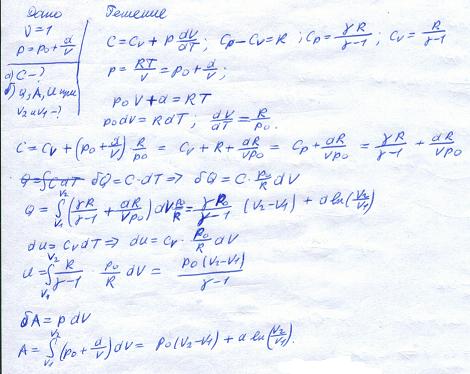 Дано
ν = 1
p = p₀ + α/V
а) C - ?
б) Q, A, U при
V₂ и V₁ - ?
Решение
C = Cv + p dV/dT ; Cp - Cv = R ; Cp = γR/(γ-1) ; Cv = R/(γ-1)
p = RT/V = p₀ + α/V ;
p₀V + α = RT
p₀dV = RdT ; dV/dT = R/p₀.
C = Cv + (p₀ + α/V) R/p₀ = Cv + R + αR/Vp₀ = Cp + αR/Vp₀ = γR/(γ-1) + αR/Vp₀
Q = ∫CdT δQ = C·dT => δQ = C· p₀/R dV
Q = ∫V₁V₂ (γR/(γ-1) + αR/Vp₀) dV p₀/R = γp₀/(γ-1) (V₂-V₁) + α ln(V₂/V₁)
dU = CvdT => dU = Cv · p₀/R dV
U = ∫V₁V₂ R/(γ-1) · p₀/R dV = p₀(V₂-V₁)/(γ-1)
δA = p dV
A = ∫V₁V₂ (p₀ + α/V) dV = p₀(V₂-V₁) + α ln(V₂/V₁).